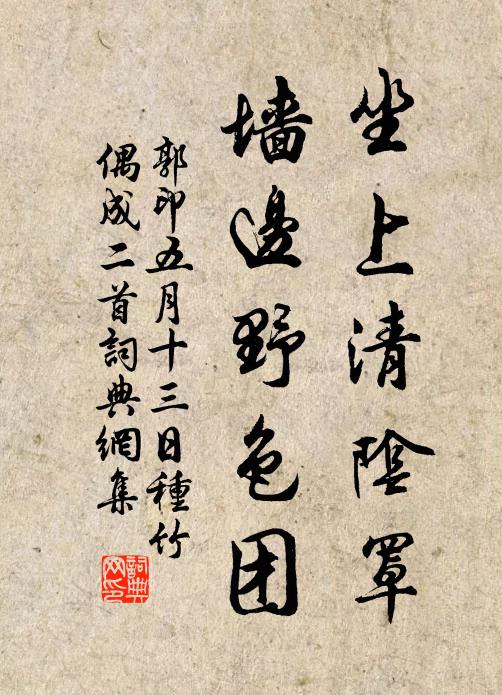 坐上清陰罩
墙邊野色团
郭印五月十三日種竹
偶成二首詞典網集
詞典
网印